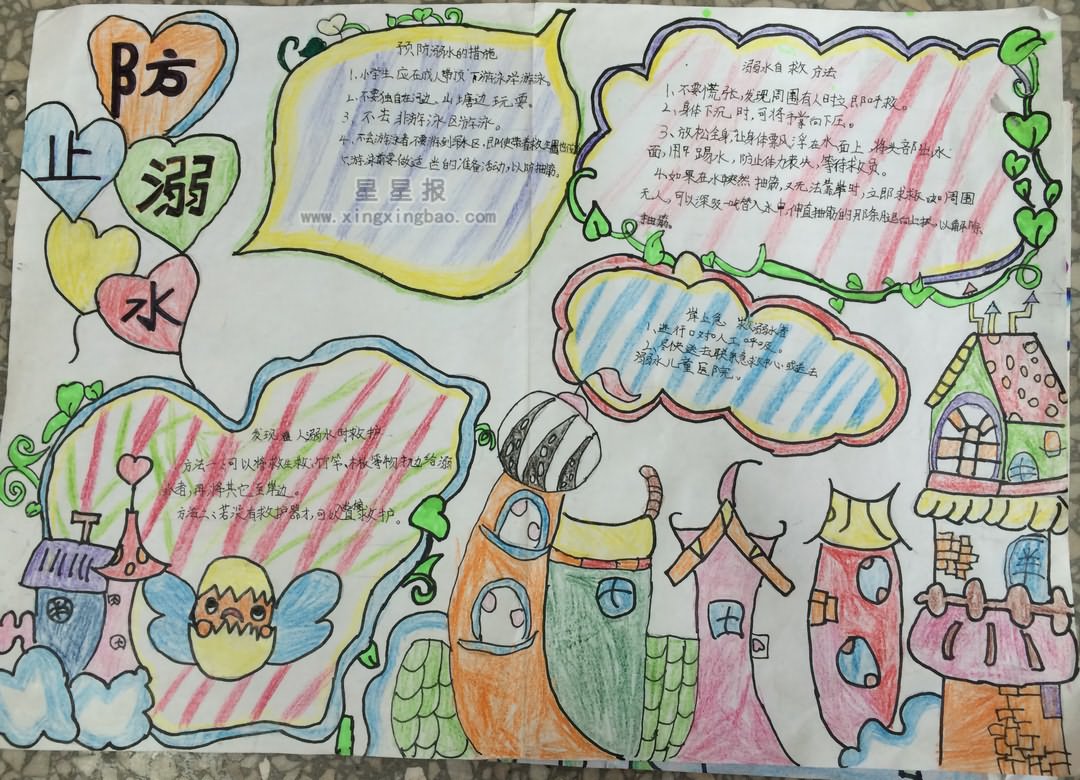 防
止
溺
水
预防溺水的措施
1、小学生应在成人带领下游泳学游泳。
2、不要独自在河边、山塘边玩耍。
3、不去非游泳区游泳。
4、不会游泳者,不要游到深水区,即使带着救生圈也
游泳前要做适当的准备活动,以防抽筋。
星星报
www.xingxingbao.com
溺水自救方法
1、不要慌张,发现周围有人时立即呼救。
2、身体下沉时,可将手掌向下压。
3、放松全身,让身体飘浮在水面上,将头部出水
面,用脚踢水,防止体力丧失,等待救员。
4、如果在水突然抽筋,又无法靠岸时,立即求救。如周围
无人,可以深吸一口气潜入水中,伸直抽筋的那条腿
抽筋。
岸上急救溺水者
1、进行口对口人工呼吸。
2、尽快送去联系急救中心或送去
溺水儿童医院。
发现 人溺水时救护
方法一、可以将救生 竹竿、木板等物 给溺
水者,再将其 至岸边。
方法二、若没有救护器才,可以 救护。